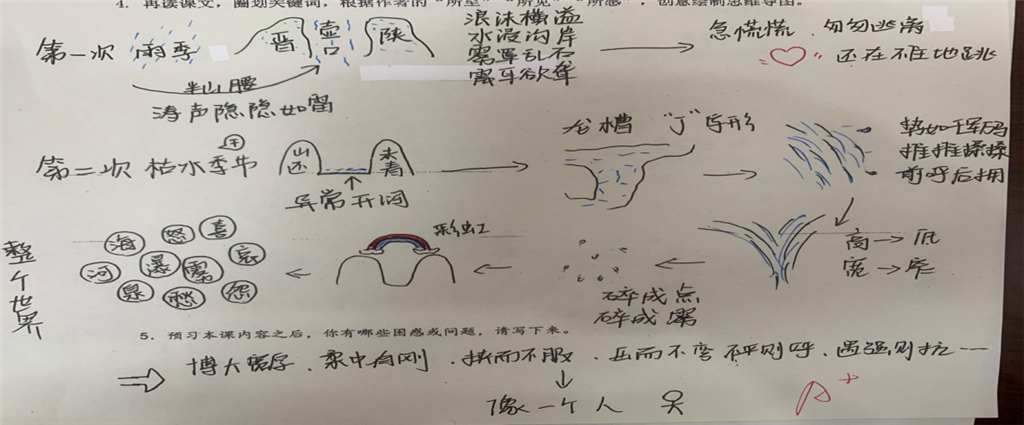 4. 再读课文，圈划关键词，根据作者的“所至”“所见”“所感”，创意绘制思维导图。
第一次 雨季 晋 壶口 陕 浪沫横溢 急慌慌、匆匆逃离
水浸沟岸 还在不住地跳
雾罩乱石
震耳欲聋
半山腰
涛声隐隐如雷
第二次 枯水季节 山还 未青 龙槽 “J”字形 势如千军万马
推推搡搡
前呼后拥
异常开阔
整个世界 海 怒 喜 河 哀 泉 愁 怨 彩虹 碎成点 碎成雾 高→低
宽→窄
5. 预习本课内容之后，你有哪些困惑或问题，请写下来。
博大宽厚、柔中有刚、挤而不服、压而不弯 不平则呼、遇强则抗……
像一个人
A+